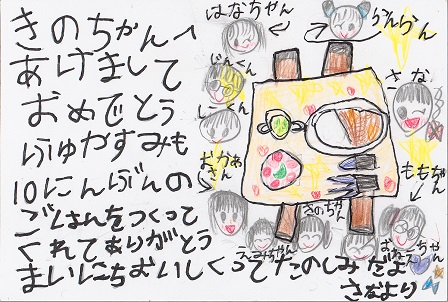 きのちゃんへ
あけまして
おめでとう
ふゆやすみも
10にんぶんの
ごはんをつくって
くれてありがとう
まいにちおいしくってたのしみだよ
さなより
はなちゃん
らんらん
じんくん
さな
おかあさん
ももちゃん
きのちゃん
えみちゃん
おねえちゃん